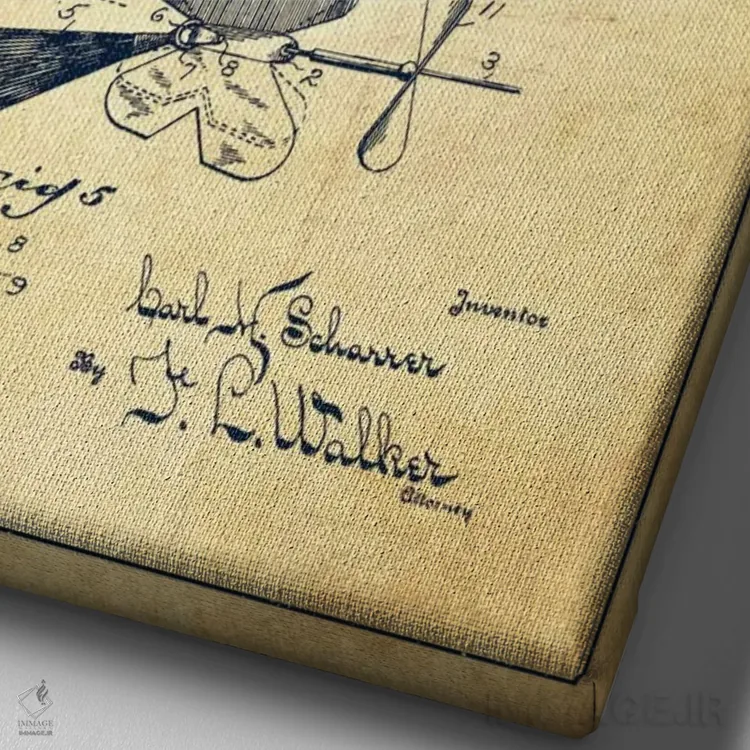 6
5
11
3
7
8
2
Fig 5
8
9
Inventor
Carl M. Scharrer
By
F. L. Walker
Attorney
IMMAGE
IMMAGE.IR
IMMAGE.IR